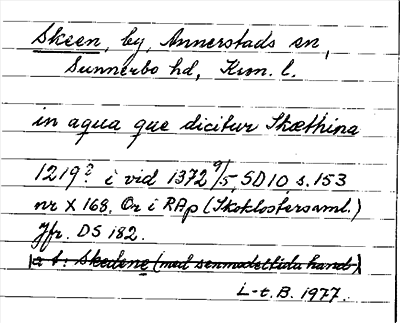 Skeen, by, Annerstads sn,
Sunnerbo hd, Kron. l.
in aqua que dicitur Skæthina
1219? i vid 1372 9/5, SD10, s. 153
nr X 168. Or i RAp (Skoklostersaml.)
Jfr. DS 182.
a t: Skedene (med senmedeltida hand)
L-t. B. 1977.